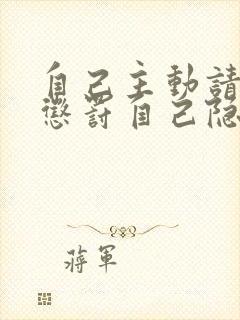 自己主動請
懲罰自己隐
蔣軍